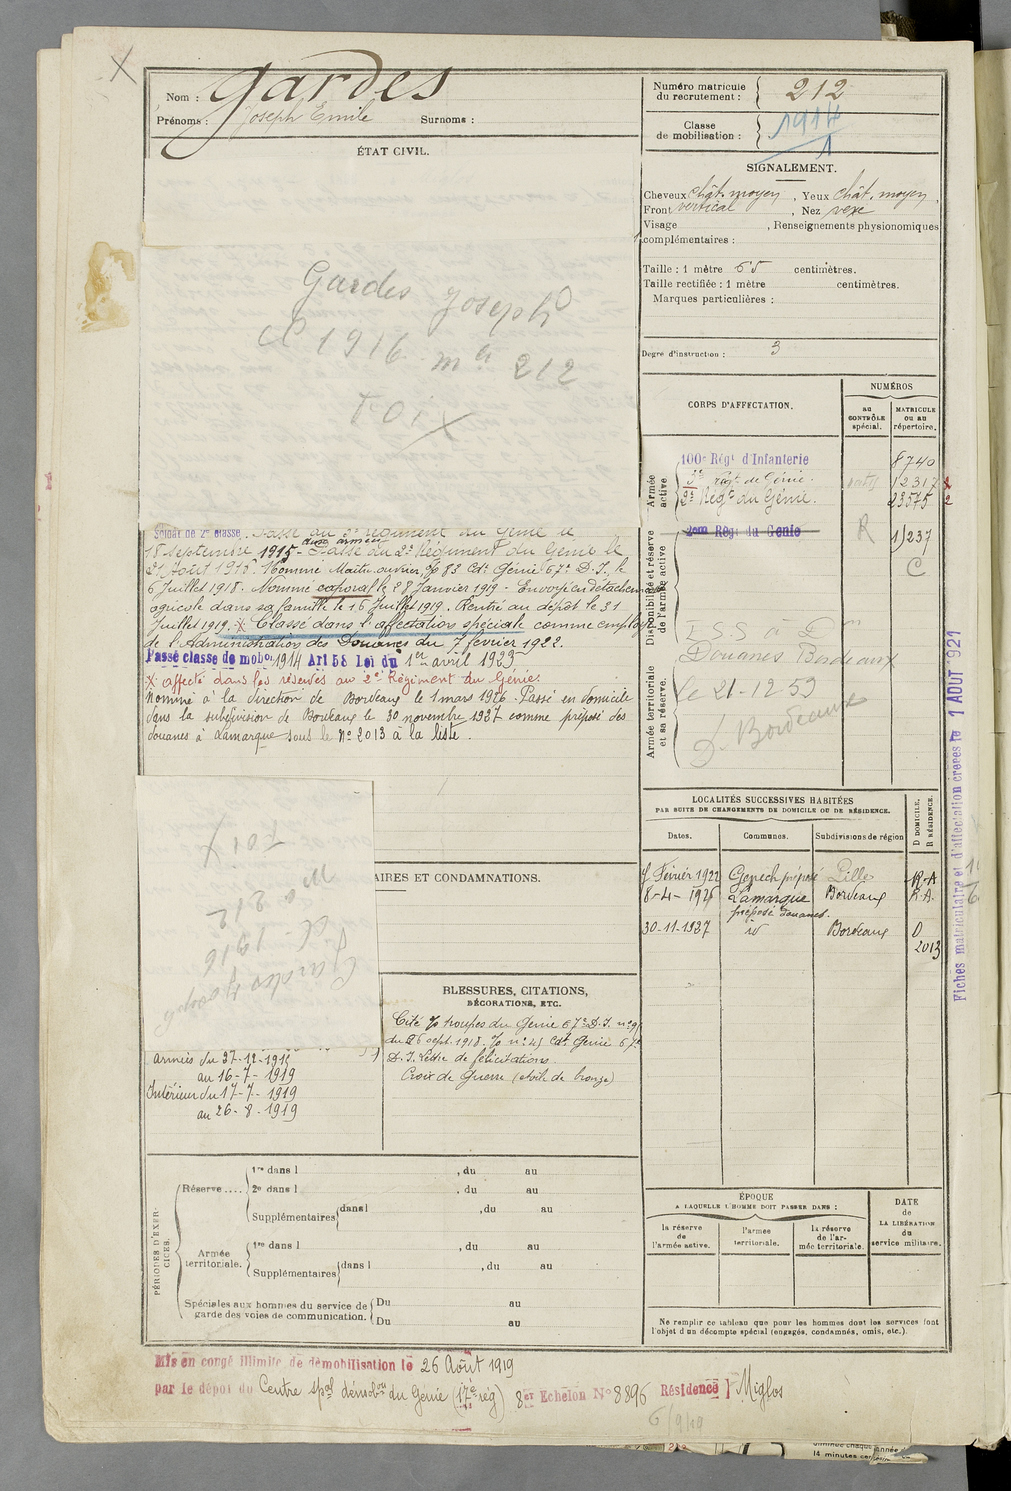 Nom : Gardes
Prénoms : Joseph Emile Surnoms :
ÉTAT CIVIL.
Gardes Joseph
Cl 1916 mle 212
FOIX
Soldat de 2e classe. Passé au 3e Régiment du Génie le
18 septembre 1915 - aux armées Passé au 2e Régiment du Génie le
21 Août 1918. Nommé Maitre ouvrier O/ 82 Cdt Génie 67e D.I. le
6 Juillet 1918. Nommé caporal le 28 Janvier 1919 - Envoyé en détachement
agricole dans sa famille le 16 Juillet 1919. Rentré au dépôt le 31
Juillet 1919. X Classé dans l'affectation spéciale comme employé
de l'Administration des Douanes du 7 février 1922.
Passé classe de mobon 1914 Art 58 Loi du 1er avril 1923
X affecté dans les réserves au 2e Régiment du Génie.
Nommé à la direction de Bordeaux le 1 mars 1926. Passé en domicile
dans la subdivision de Bordeaux le 30 novembre 1927 comme préposé des
douanes à Lamarque sous le No 2013 à la liste.
AIRES ET CONDAMNATIONS.
FOIX
mle 212
cl 1916
Gardes Joseph
BLESSURES, CITATIONS,
DÉCORATIONS, ETC.
Cité O/ troupes du Génie 67e D.I. no 91
du 26 sept. 1918. O/ no 41 Cdt Génie 67e
D.I. Lettre de félicitations.
Croix de Guerre (étoile de bronze)
Armées du 27-12-1915
au 16-7-1919
Intérieur du 17-7-1919
au 26-8-1919
PÉRIODES D'EXERCICES.
Réserve .... 1re dans l , du au
2e dans l , du au
Supplémentaires dans l , du au
Armée territoriale. 1re dans l , du au
Supplémentaires dans l , du au
Spéciales aux hommes du service de garde des voies de communication. Du au
Du au
Numéro matricule
du recrutement : 212
Classe
de mobilisation : 1914
1
SIGNALEMENT.
Cheveux chât. moyen , Yeux chât. moyen ,
Front vertical , Nez vexe
Visage , Renseignements physionomiques
complémentaires :
Taille : 1 mètre 65 centimètres.
Taille rectifiée : 1 mètre centimètres.
Marques particulières :
Degré d'instruction : 3
CORPS D'AFFECTATION.
NUMÉROS
au CONTRÔLE spécial.
MATRICULE ou au répertoire.
Armée active
100e Régt d'Infanterie 8740
3e Régt de Génie. 12317
2e Régt du Génie. 23575 2
Disponibilité et réserve de l'armée active
2eme Régt du Génie R 1)237
C
Douanes Bordeaux
Armée territoriale et sa réserve.
le 21-12-59
D. Bordeaux
LOCALITÉS SUCCESSIVES HABITÉES
PAR SUITE DE CHANGEMENTS DE DOMICILE OU DE RÉSIDENCE.
Dates. Communes. Subdivisions de région D DOMICILE. R RÉSIDENCE.
7 Février 1922 Genech préposé Lille R.A
8-4-1926 Lamarque Bordeaux R.A.
préposé douanes.
30-11-1927 id Bordeaux D
2013
ÉPOQUE
A LAQUELLE L'HOMME DOIT PASSER DANS :
la réserve de l'armée active.
l'armée territoriale.
la réserve de l'armée territoriale.
DATE de LA LIBÉRATION du service militaire.
Ne remplir ce tableau que pour les hommes dont les services font
l'objet d'un décompte spécial (engagés, condamnés, omis, etc.).
Fiches matriculaire et d'affectation créées le 1 AOUT 1921
Mis en congé illimité de démobilisation le 26 Août 1919
par le dépôt du Centre spal démobon du Génie (17e rég) 8er Echelon No 8896 Résidence Miglos
6/9/19
14 minutes